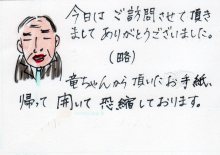 今日は ご訪問させて頂き
まして ありがとうございました。
(略)
竜ちゃんから頂いたお手紙、
帰って 開いて 恐縮しております。